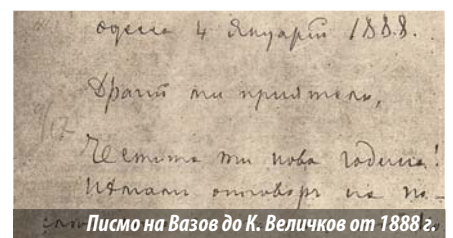 одеса 4 Януарий 1888.
Драгий ми приятелю,
Честита ти нова година!
Нямали отговоръ на по-
Писмо на Вазов до К. Величков от 1888 г.